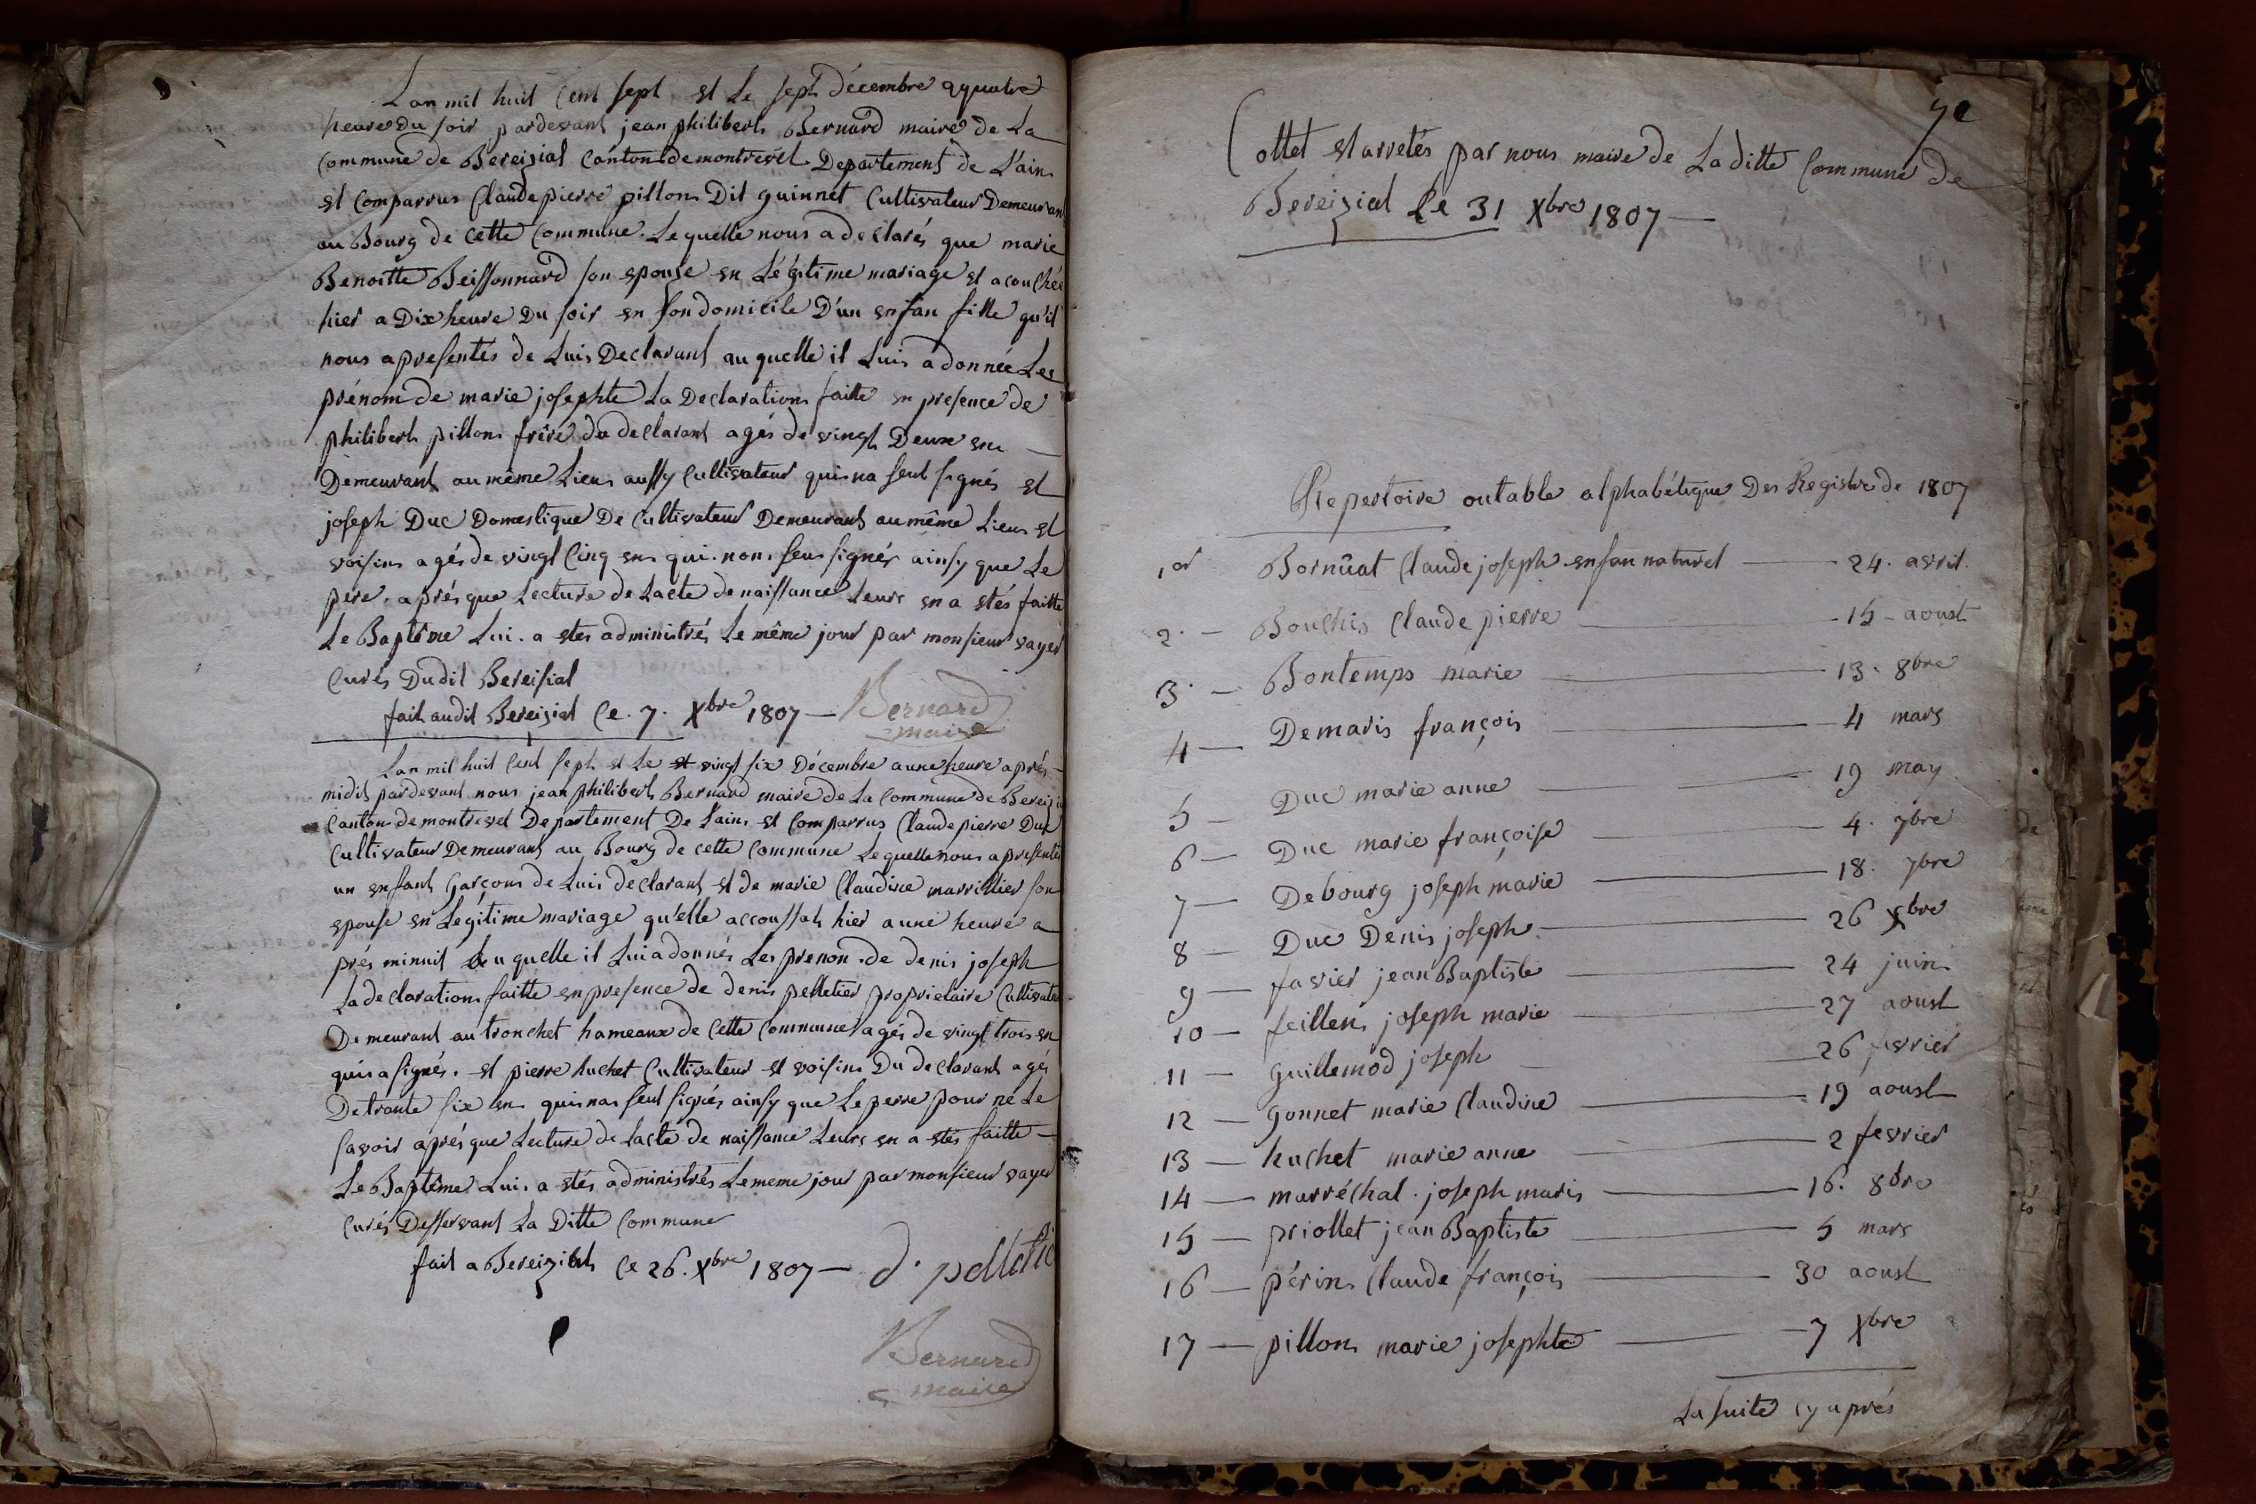 Lan mil huit Cent sept et Le sept décembre a quatre
heure du soir pardevant jean philibert Bernard maire de La
Commune de Bereizial Canton de montrevel Departement de L'ain
et Comparrus Claude pierre pillon Dit guinnet Cultivateur Demeurant
au Bourg de Cette Commune. Lequelle nous a declarés que marie
Benoitte Beissonnard son epouse en Légitime mariage et acouchée
hier a Dix heure Du soir en son domicile D'un enfan fille qu'il
nous a presentés de Luis Declarant au quelle il Luis a donnée Les
prénom de marie josephte La Declaration faitte en presence de
philibert pillon frère du declarant agés de vingt Deux en
Demeurant au même Lieu aussy Cultivateur qui na seut signés et
joseph Duc Domestique De Cultivateur Demeurant au même Lieu et
voisin agés de vingt Cinq en qui. non seu signés ainsy que Le
pere. après que Lecture de Lacte de naissance Leurs en a etés faitte
Le Baptême Lui. a etes administrés Le même jour par monsieur vayer
Curés Dudit Bereisial
fait audit Bereizial Ce. 7. Xbre 1807 — Bernard
maire
Lan mil huit Cent sept et Le et vingt six Décembre a une heure aprés
midis pardevant nous jean philibert Bernard maire de La Commune de Bereizi
Canton de montrevel Departement De Lain et Comparrus Claude pierre Duc
Cultivateur Demeurant au Bourg de cette Commune Lequelle nous a presentés
un enfant Garçons de Luis declarant et de marie Claudine marrillier son
epouse en Legitime mariage qu'elle accoussah hier a une heure a
prés minuit au quelle il Lui a donnés Les prenon. de denis joseph
La declaration faitte en presence de denis pelletier proprietaire Cultivate
Demeurant au tronchet hameaux de Cette Commune agés de vingt trois en
quis a signés. et pierre huchet Cultivateur et voisins Du declarant agés
De trante six en quis nas seut signés ainsy que Le perre pour ne Le
savoir aprés que Lecture de Lacte de naissance Leurs en a etés faitte —
Le Baptême Lui. a etés administrés Le meme jour par monsieur vayer
Curés Dessersant La Ditte Commune
fait a Bereizial Ce 26. Xbre 1807 — d. pelletie
Bernard
maire
Cottet et arretés par nous maire de La ditte Commune de
Bereizial Le 31 Xbre 1807 —
Repertoire ou table alphabétique Des Registre de 1807
1er Bornûat Claude joseph enfan naturel — 24. avril.
2. — Bouchis Claude pierre — 15 - aoust
3. — Bontemps marie — 13. 8bre
4 — Demaris françois — 4 mars
5 — Duc marie anne — 19 may
6 — Duc marie françoise — 4. 7bre
7 — Debourg joseph marie — 18. 7bre
8 — Duc Denis joseph — 26 Xbre
9 — favier jean Baptiste — 24 juin
10 — feillens joseph marie — 27 aoust
11 — guillemod joseph — 26 fevrier
12 — gonnet marie Claudine — 19 aoust
13 — huchet marie anne — 2 fevrier
14 — marréchal. joseph maris — 16. 8bre
15 — priollet jean Baptiste — 5 mars
16 — périn Claude françois — 30 aoust
17 — pillon marie josephte — 7 Xbre
La suite cy aprés